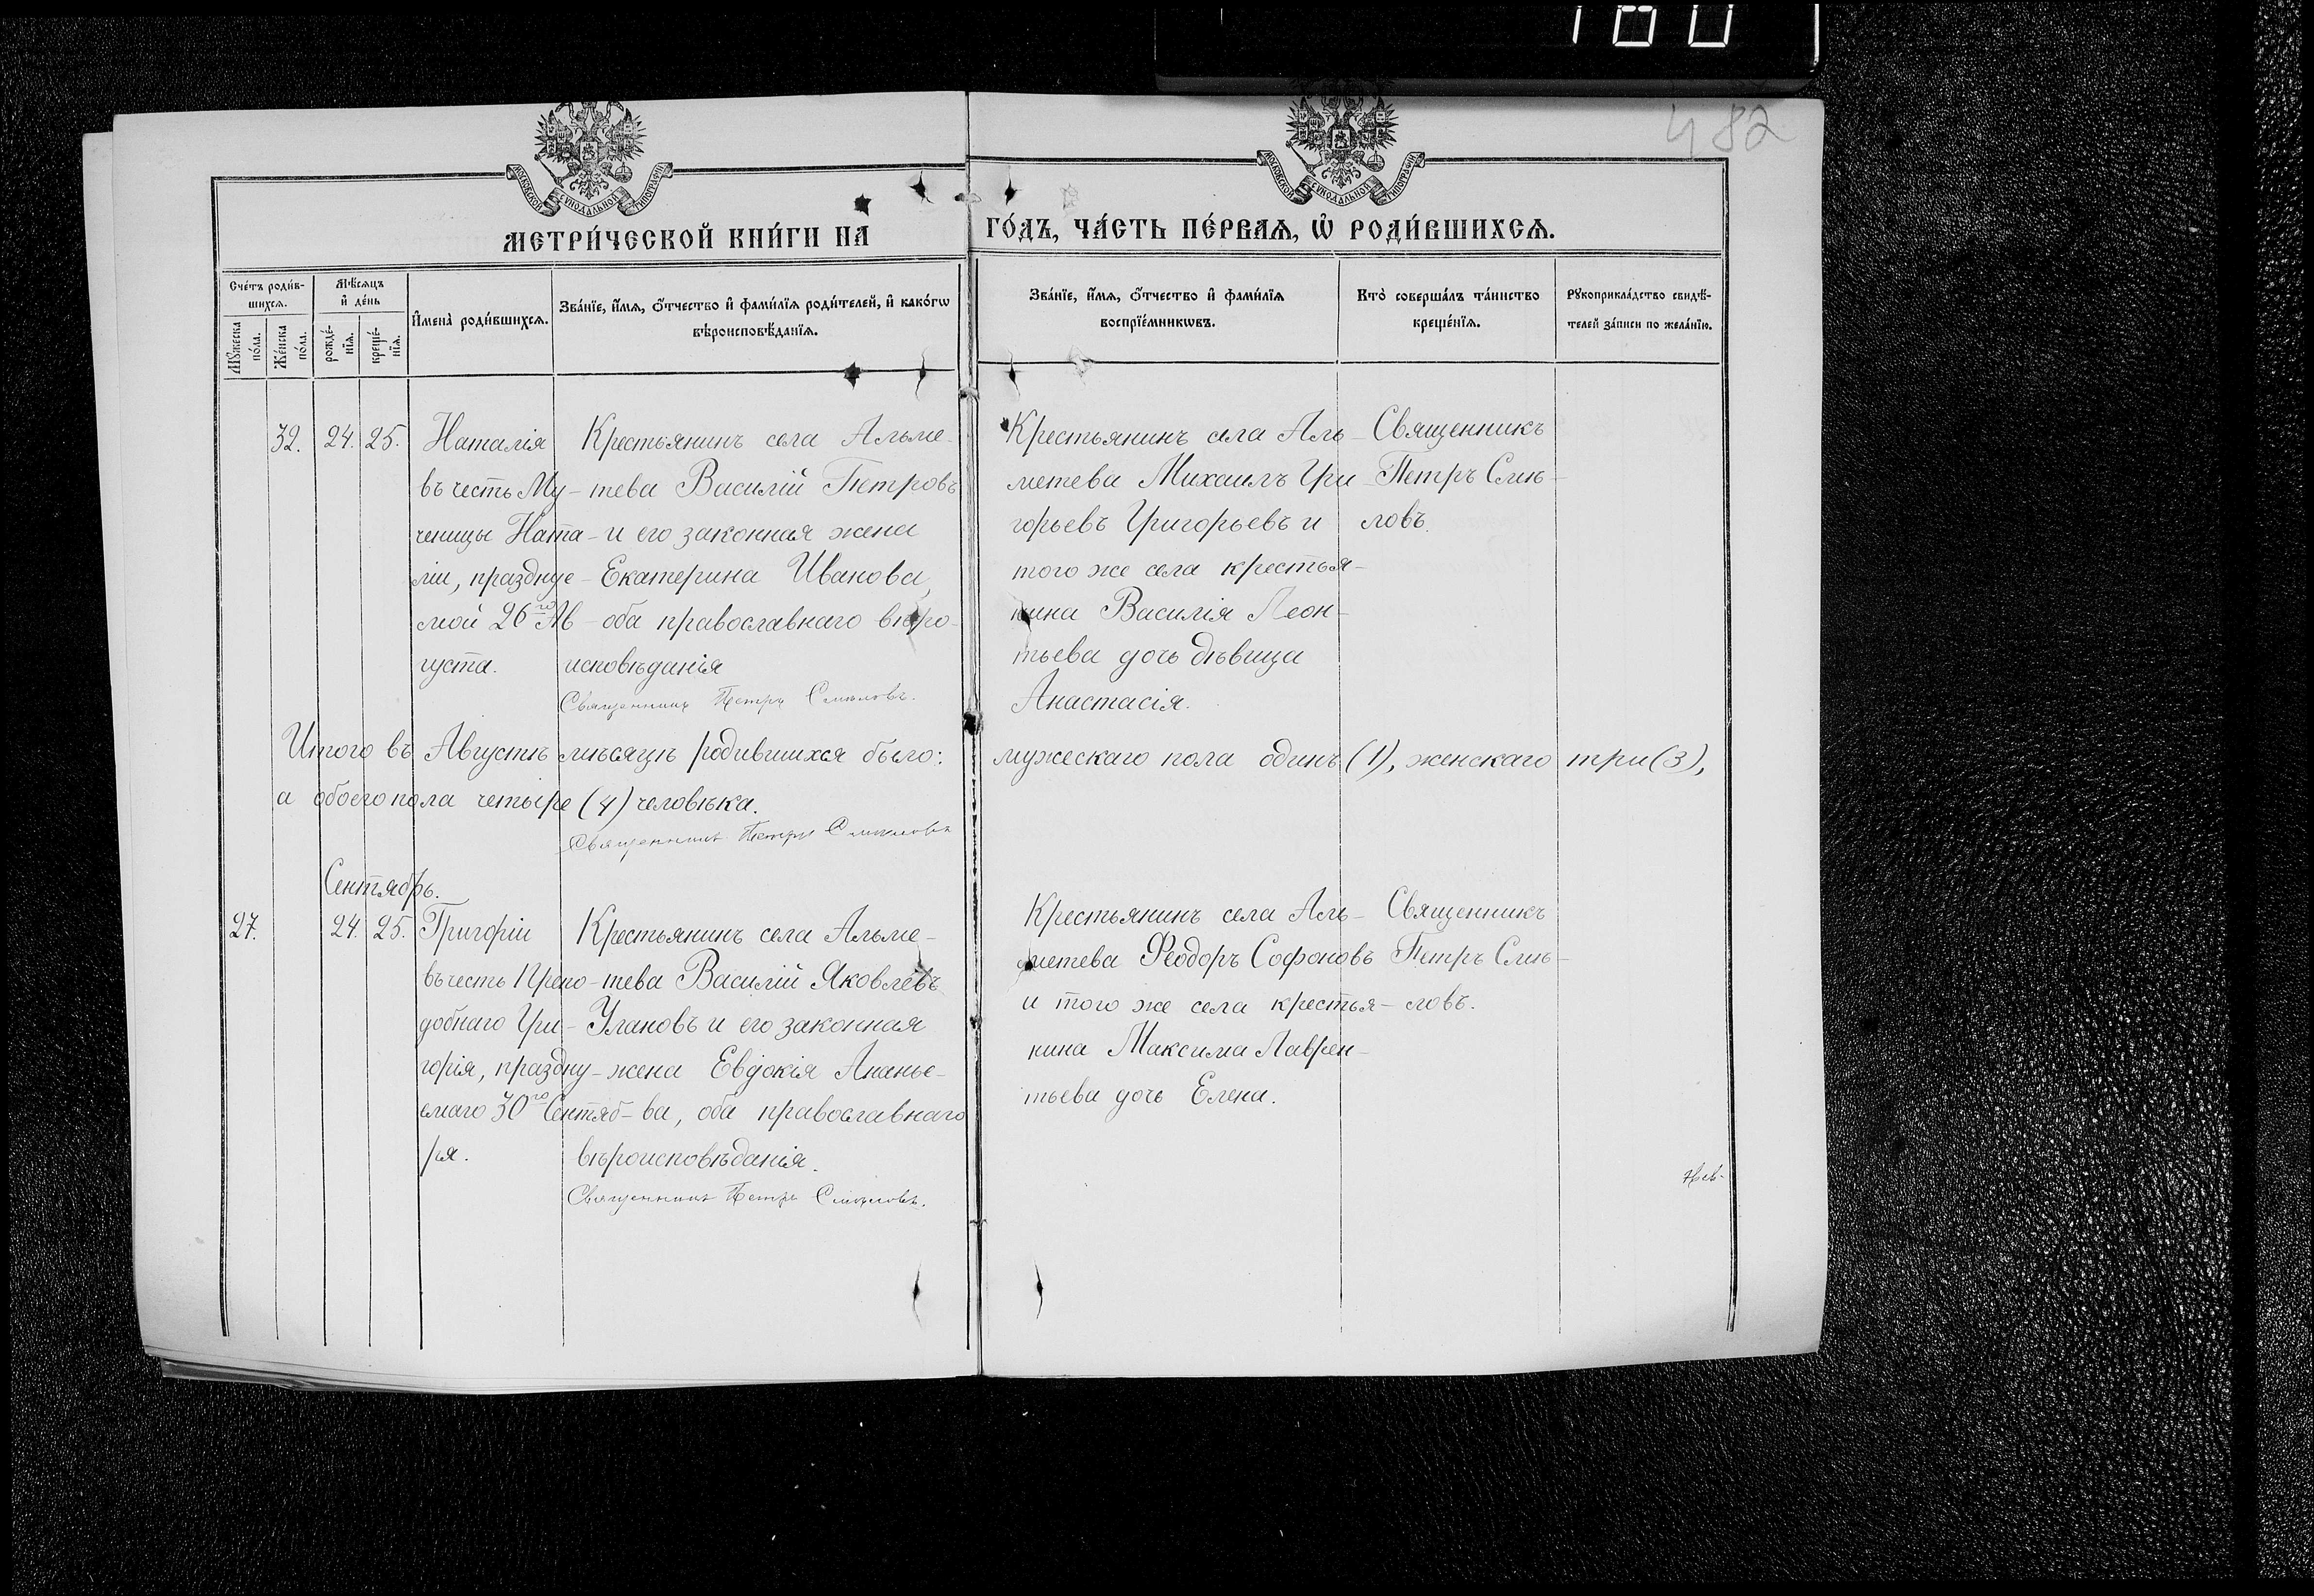 180
482
МОСКОВСКОЙ СѴНОДАЛЬНОЙ ТИПОГРАФІИ
МОСКОВСКОЙ СѴНОДАЛЬНОЙ ТИПОГРАФІИ
МЕТРИ́ЧЕСКОЙ КНИ́ГИ НА ГО́ДЪ, ЧА́СТЬ ПЕ́РВАѦ, Ѡ҆ РОДИ́ВШИХСѦ.
Сче́тъ роди́в-
шихсѧ.
Мꙋ́жеска
по́ла.
Же́нска
по́ла.
Мѣ́сѧцъ
и҆ де́нь
рожде́-
нїѧ.
креще́-
нїѧ.
И҆мена̀ роди́вшихсѧ.
Зва́нїе, и҆́мѧ, ѻ҆́тчество и҆ фами́лїѧ роди́телей, и҆ како́гѡ
вѣроисповѣ́данїѧ.
Зва́нїе, и҆́мѧ, ѻ҆́тчество и҆ фами́лїѧ
воспрїе́мникѡвъ.
Кто̀ соверша́лъ та́инство
креще́нїѧ.
Рꙋкоприкла́дство свидѣ́-
телей за́писи по жела́нїю.
32. 24. 25.
Наталія
въ честь Му-
ченицы Ната-
ліи, празднуе-
мой 26го Ав-
густа.
Крестьянинъ села Альме-
тева Василій Петровъ
и его законная жена
Екатерина Иванова,
оба православнаго вѣро-
исповѣданія
Священникъ Петръ Смѣловъ.
Крестьянинъ села Аль-
метева Михаилъ Гри-
горьевъ Григорьевъ и
того же села крестья-
нина Василія Леон-
тьева дочь дѣвица
Анастасія.
Священникъ
Петръ Смѣ-
ловъ.
Итого въ Августѣ мѣсяцѣ родившихся было: мужескаго пола одинъ (1), женскаго три (3),
а обоего пола четыре (4) человѣка.
Священникъ Петръ Смѣловъ
Сентябрь.
27. 24. 25.
Григорій
въ честь Препо-
добнаго Гри-
горія, праздну-
емаго 30го Сентяб-
ря.
Крестьянинъ села Альме-
тева Василій Яковлевъ
Улановъ и его законная
жена Евдокія Ананье-
ва, оба православнаго
вѣроисповѣданія.
Священникъ Петръ Смѣловъ.
Крестьянинъ села Аль-
метева Ѳеодоръ Софоновъ
и того же села крестья-
нина Максима Лаврен-
тьева дочь Елена.
Священникъ
Петръ Смѣ-
ловъ.